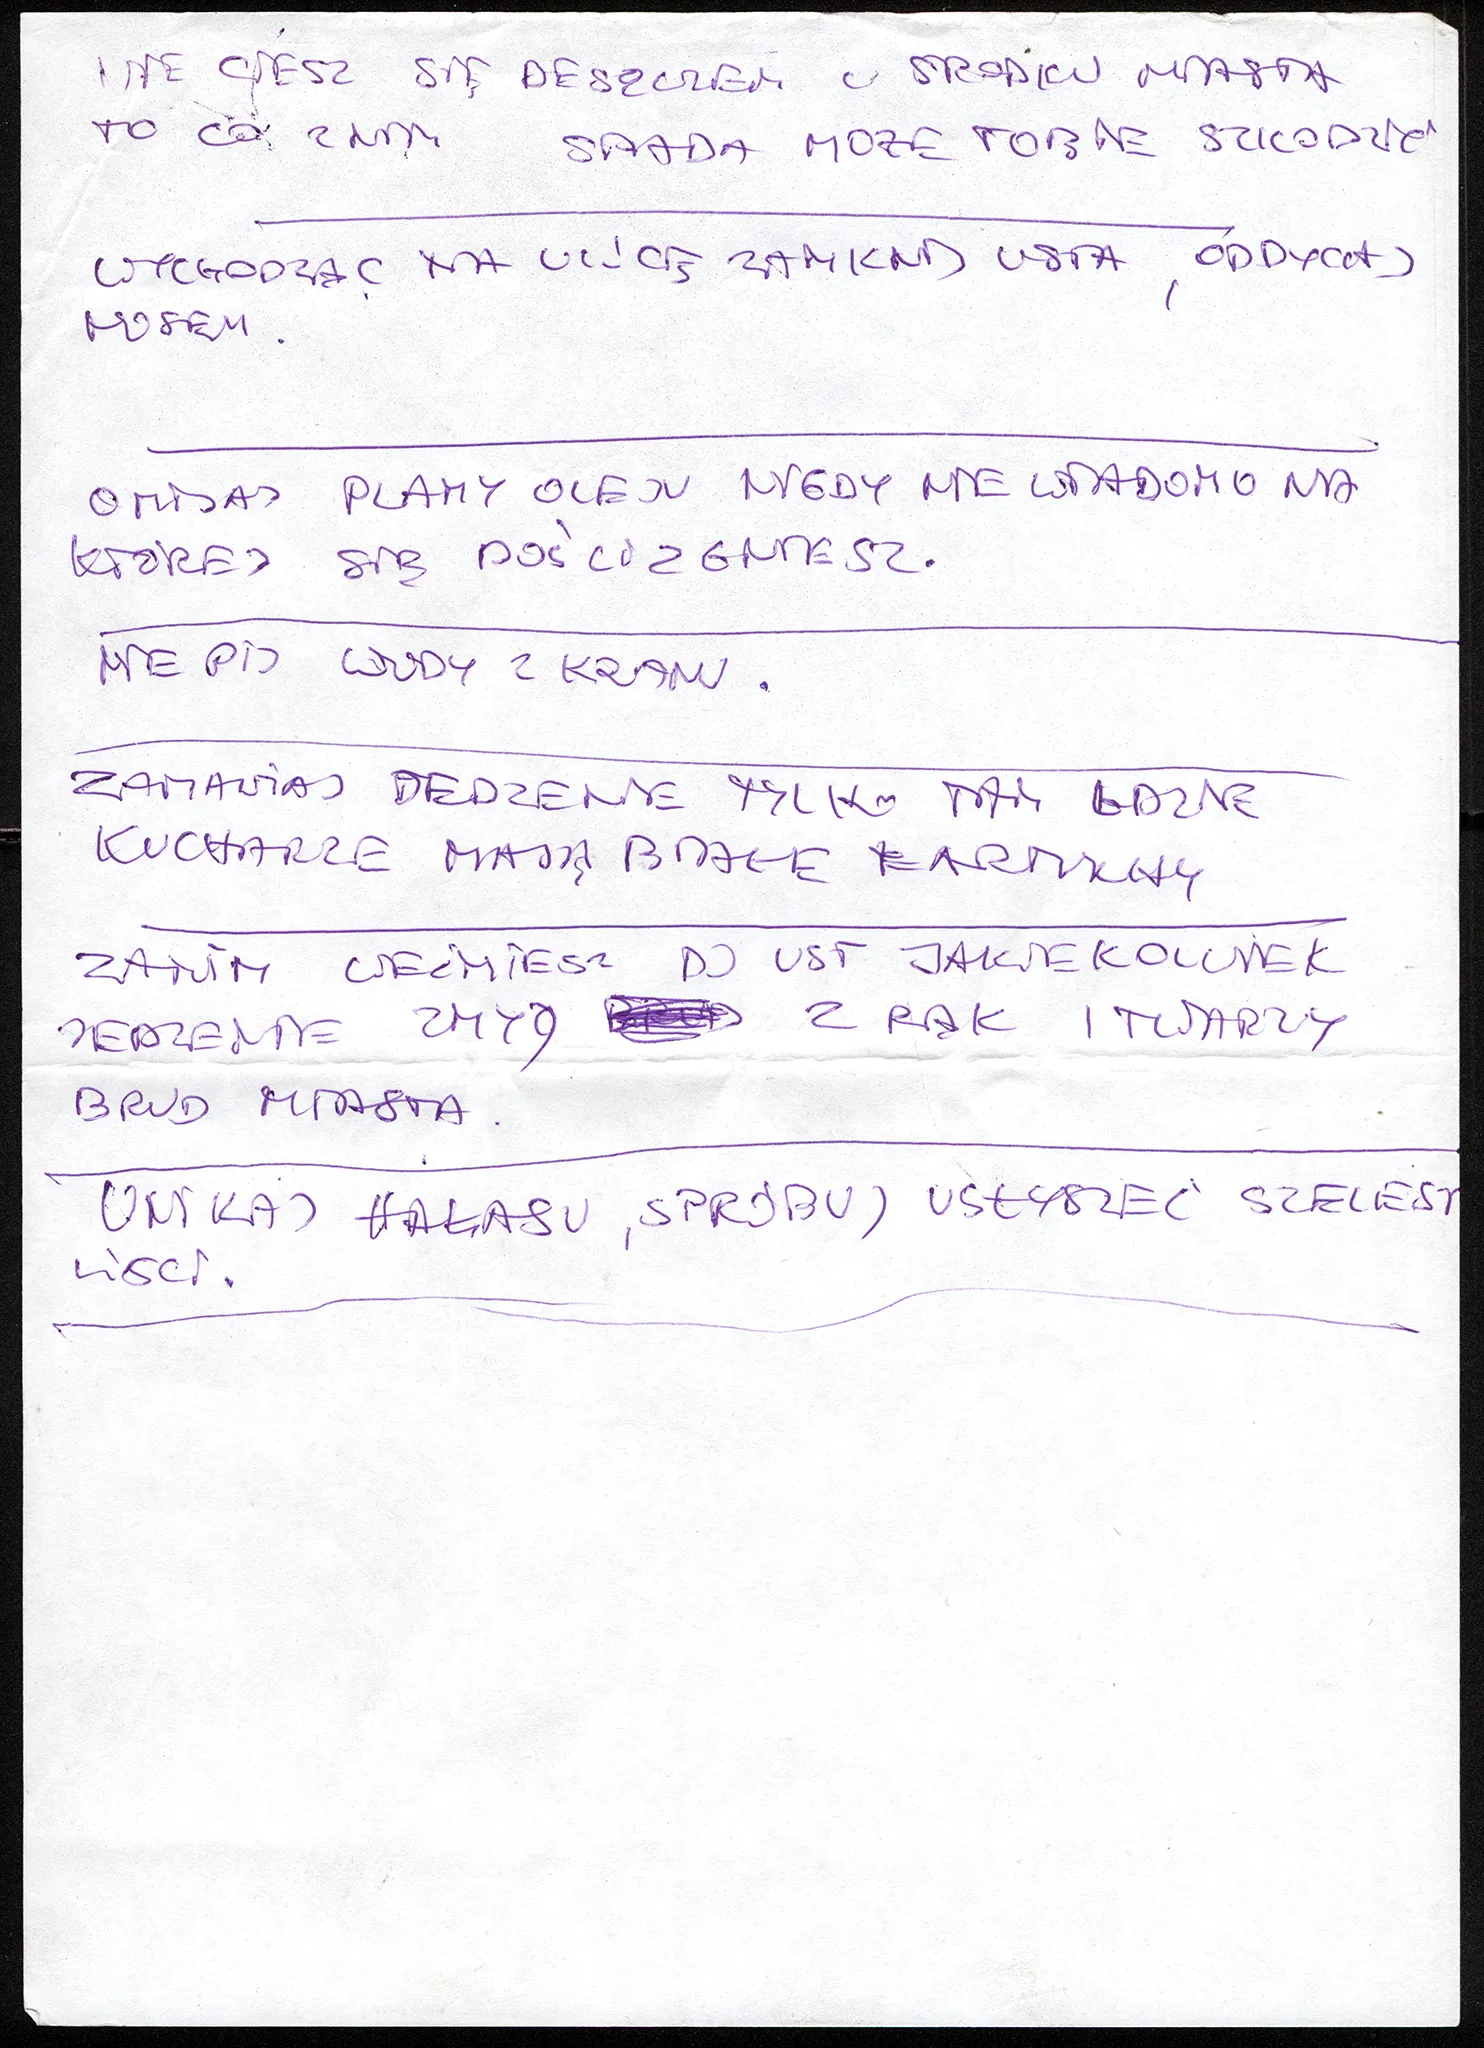 NIE CIESZ SIĘ DESZCZEM W ŚRODKU MIASTA
TO CO Z NIM SPADA MOŻE TOBIE SZKODZIĆ
WYCHODZĄC NA ULICĘ ZAMKNIJ USTA, ODDYCHAJ
NOSEM.
OMIJAJ PLAMY OLEJU NIGDY NIE WIADOMO NA
KTÓREJ SIĘ POŚLIZGNIESZ.
NIE PIJ WODY Z KRANU.
ZAMAWIAJ JEDZENIE TYLKO TAM GDZIE
KUCHARZE MAJĄ BIAŁE FARTUCHY
ZANIM WEŹMIESZ DO UST JAKIEKOLWIEK
JEDZENIE ZMYJ Z RĄK I TWARZY
BRUD MIASTA.
UNIKAJ HAŁASU, SPRÓBUJ USŁYSZEĆ SZELEST
LIŚCI.